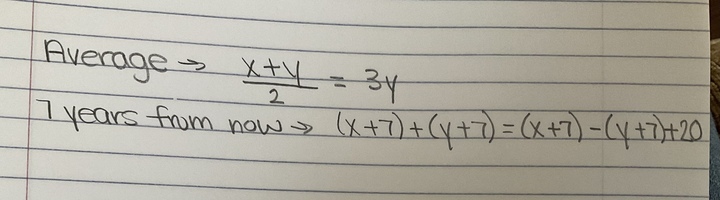 Average → x+y/2 = 3y
7 years from now → (x+7)+(y+7)=(x+7)-(y+7)+20